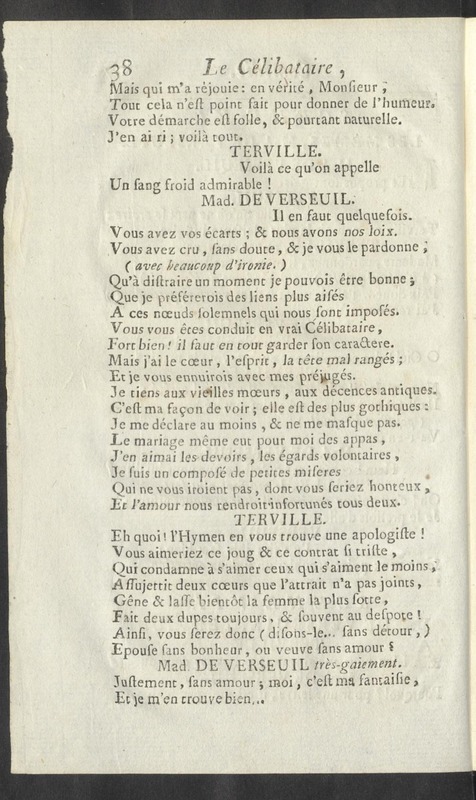 38 Le Célibataire,
Mais qui m'a réjouie: en vérité, Monsieur,
Tout cela n'est point fait pour donner de l'humeur.
Votre démarche est folle, & pourtant naturelle.
J'en ai ri; voilà tout.
TERVILLE.
Voilà ce qu'on appelle
Un sang froid admirable!
Mad. DE VERSEUIL.
Il en faut quelquefois.
Vous avez vos écarts; & nous avons nos loix.
Vous avez cru, sans doute, & je vous le pardonne;
(avec beaucoup d'ironie.)
Qu'à distraire un moment je pouvois être bonne;
Que je préférerois des liens plus aisés
A ces nœuds solemnels qui nous sont imposés.
Vous vous êtes conduit en vrai Célibataire,
Fort bien! il faut en tout garder son caractere.
Mais j'ai le cœur, l'esprit, la tête mal rangés;
Et je vous ennuirois avec mes préjugés.
Je tiens aux vieilles mœurs, aux décences antiques.
C'est ma façon de voir; elle est des plus gothiques:
Je me déclare au moins, & ne me masque pas.
Le mariage même eut pour moi des appas,
J'en aimai les devoirs, les égards volontaires,
Je suis un composé de petites miseres
Qui ne vous iroient pas, dont vous seriez honteux,
Et l'amour nous rendroit infortunés tous deux.
TERVILLE.
Eh quoi! l'Hymen en vous trouve une apologiste!
Vous aimeriez ce joug & ce contrat si triste,
Qui condamne à s'aimer ceux qui s'aiment le moins,
Assujettit deux cœurs que l'attrait n'a pas joints,
Gêne & lasse bientôt la femme la plus sotte,
Fait deux dupes toujours, & souvent un despote!
Ainsi, vous serez donc (disons-le... sans détour,)
Epouse sans bonheur, ou veuve sans amour?
Mad. DE VERSEUIL très-gaiement.
Justement, sans amour; moi, c'est ma fantaisie,
Et je m'en trouve bien...